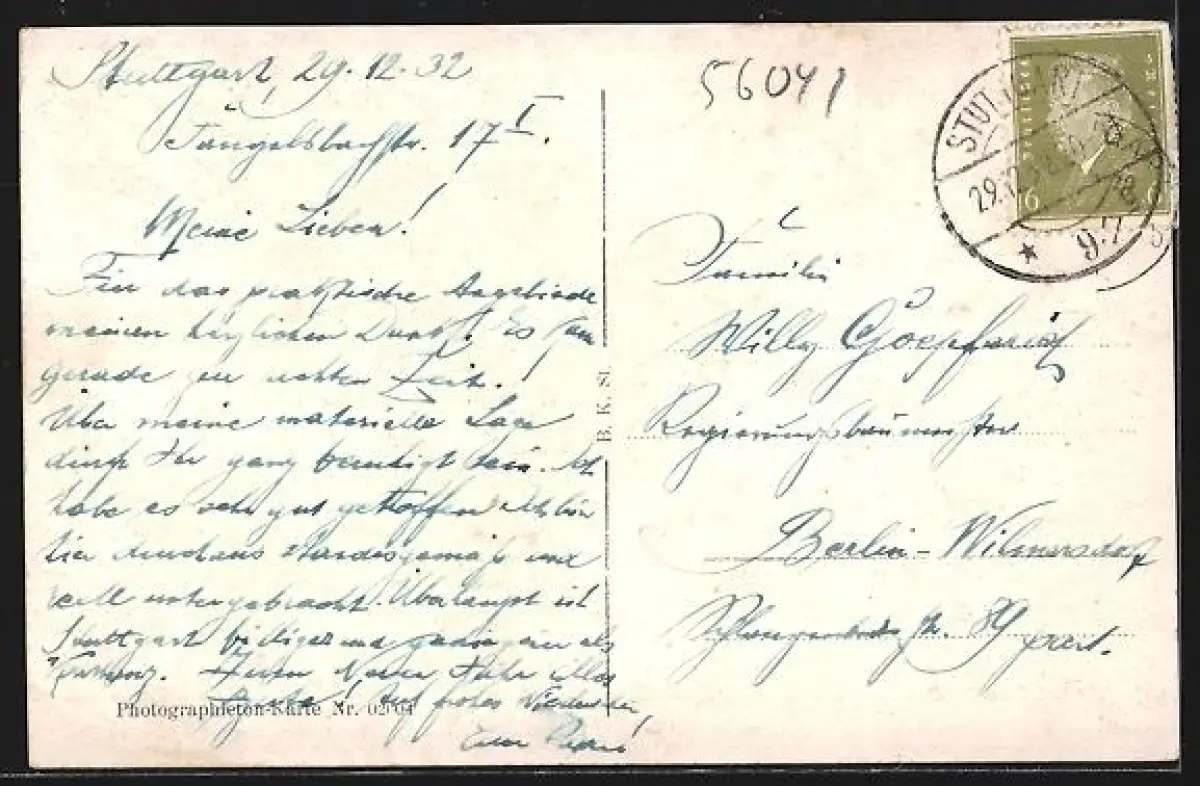 Stuttgart, 29.12.32
Fangelsbachstr. 17 I.
Meine Lieben!
Für das praktische Angebinde
meinen herzlichen Dank! Es kam
gerade zur rechten Zeit!
Über meine materielle Lage
dürft Ihr ganz beruhigt sein. Ich
habe es sehr gut getroffen. Ich bin
hier durchaus standesgemäß und
untergebracht. Überhaupt ist
Stuttgart billiger und als
Zum Neuen Jahr alles
Gute! Auf frohes Wiedersehen,
Euer
Photographieton-Karte Nr.
B. K. St.
56041
STUTTGART
29.12.32
6
Familie
Willy Goepferich
Regierungsbaumeister
Berlin-Wilmersdorf
89 part.